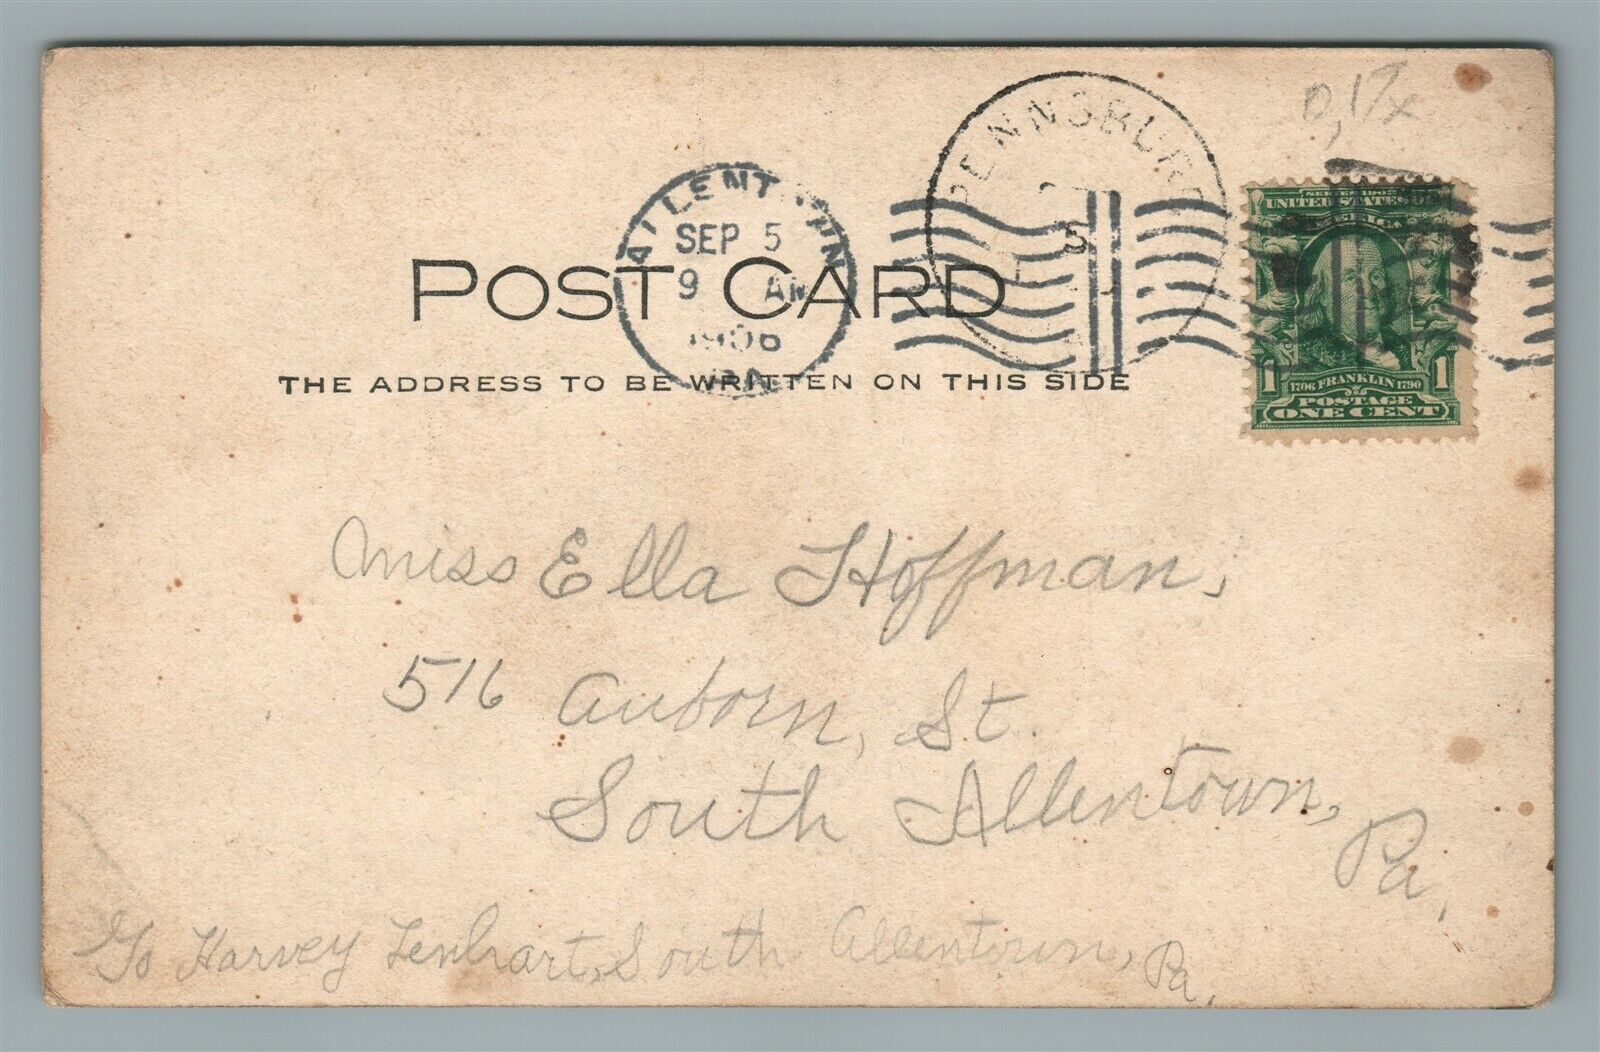 PENNSBURG
5
ALLENTOWN
SEP 5
9 AM
1906
PA
POST CARD
THE ADDRESS TO BE WRITTEN ON THIS SIDE
SERIES 1902
UNITED STATES OF
AMERICA
1 1
1706 FRANKLIN 1790
POSTAGE
ONE CENT
Miss Ella Hoffman,
516 Auborn, St.
South Allentown,
Pa,
c/o Harvey Lenhart, South Allentown, Pa,